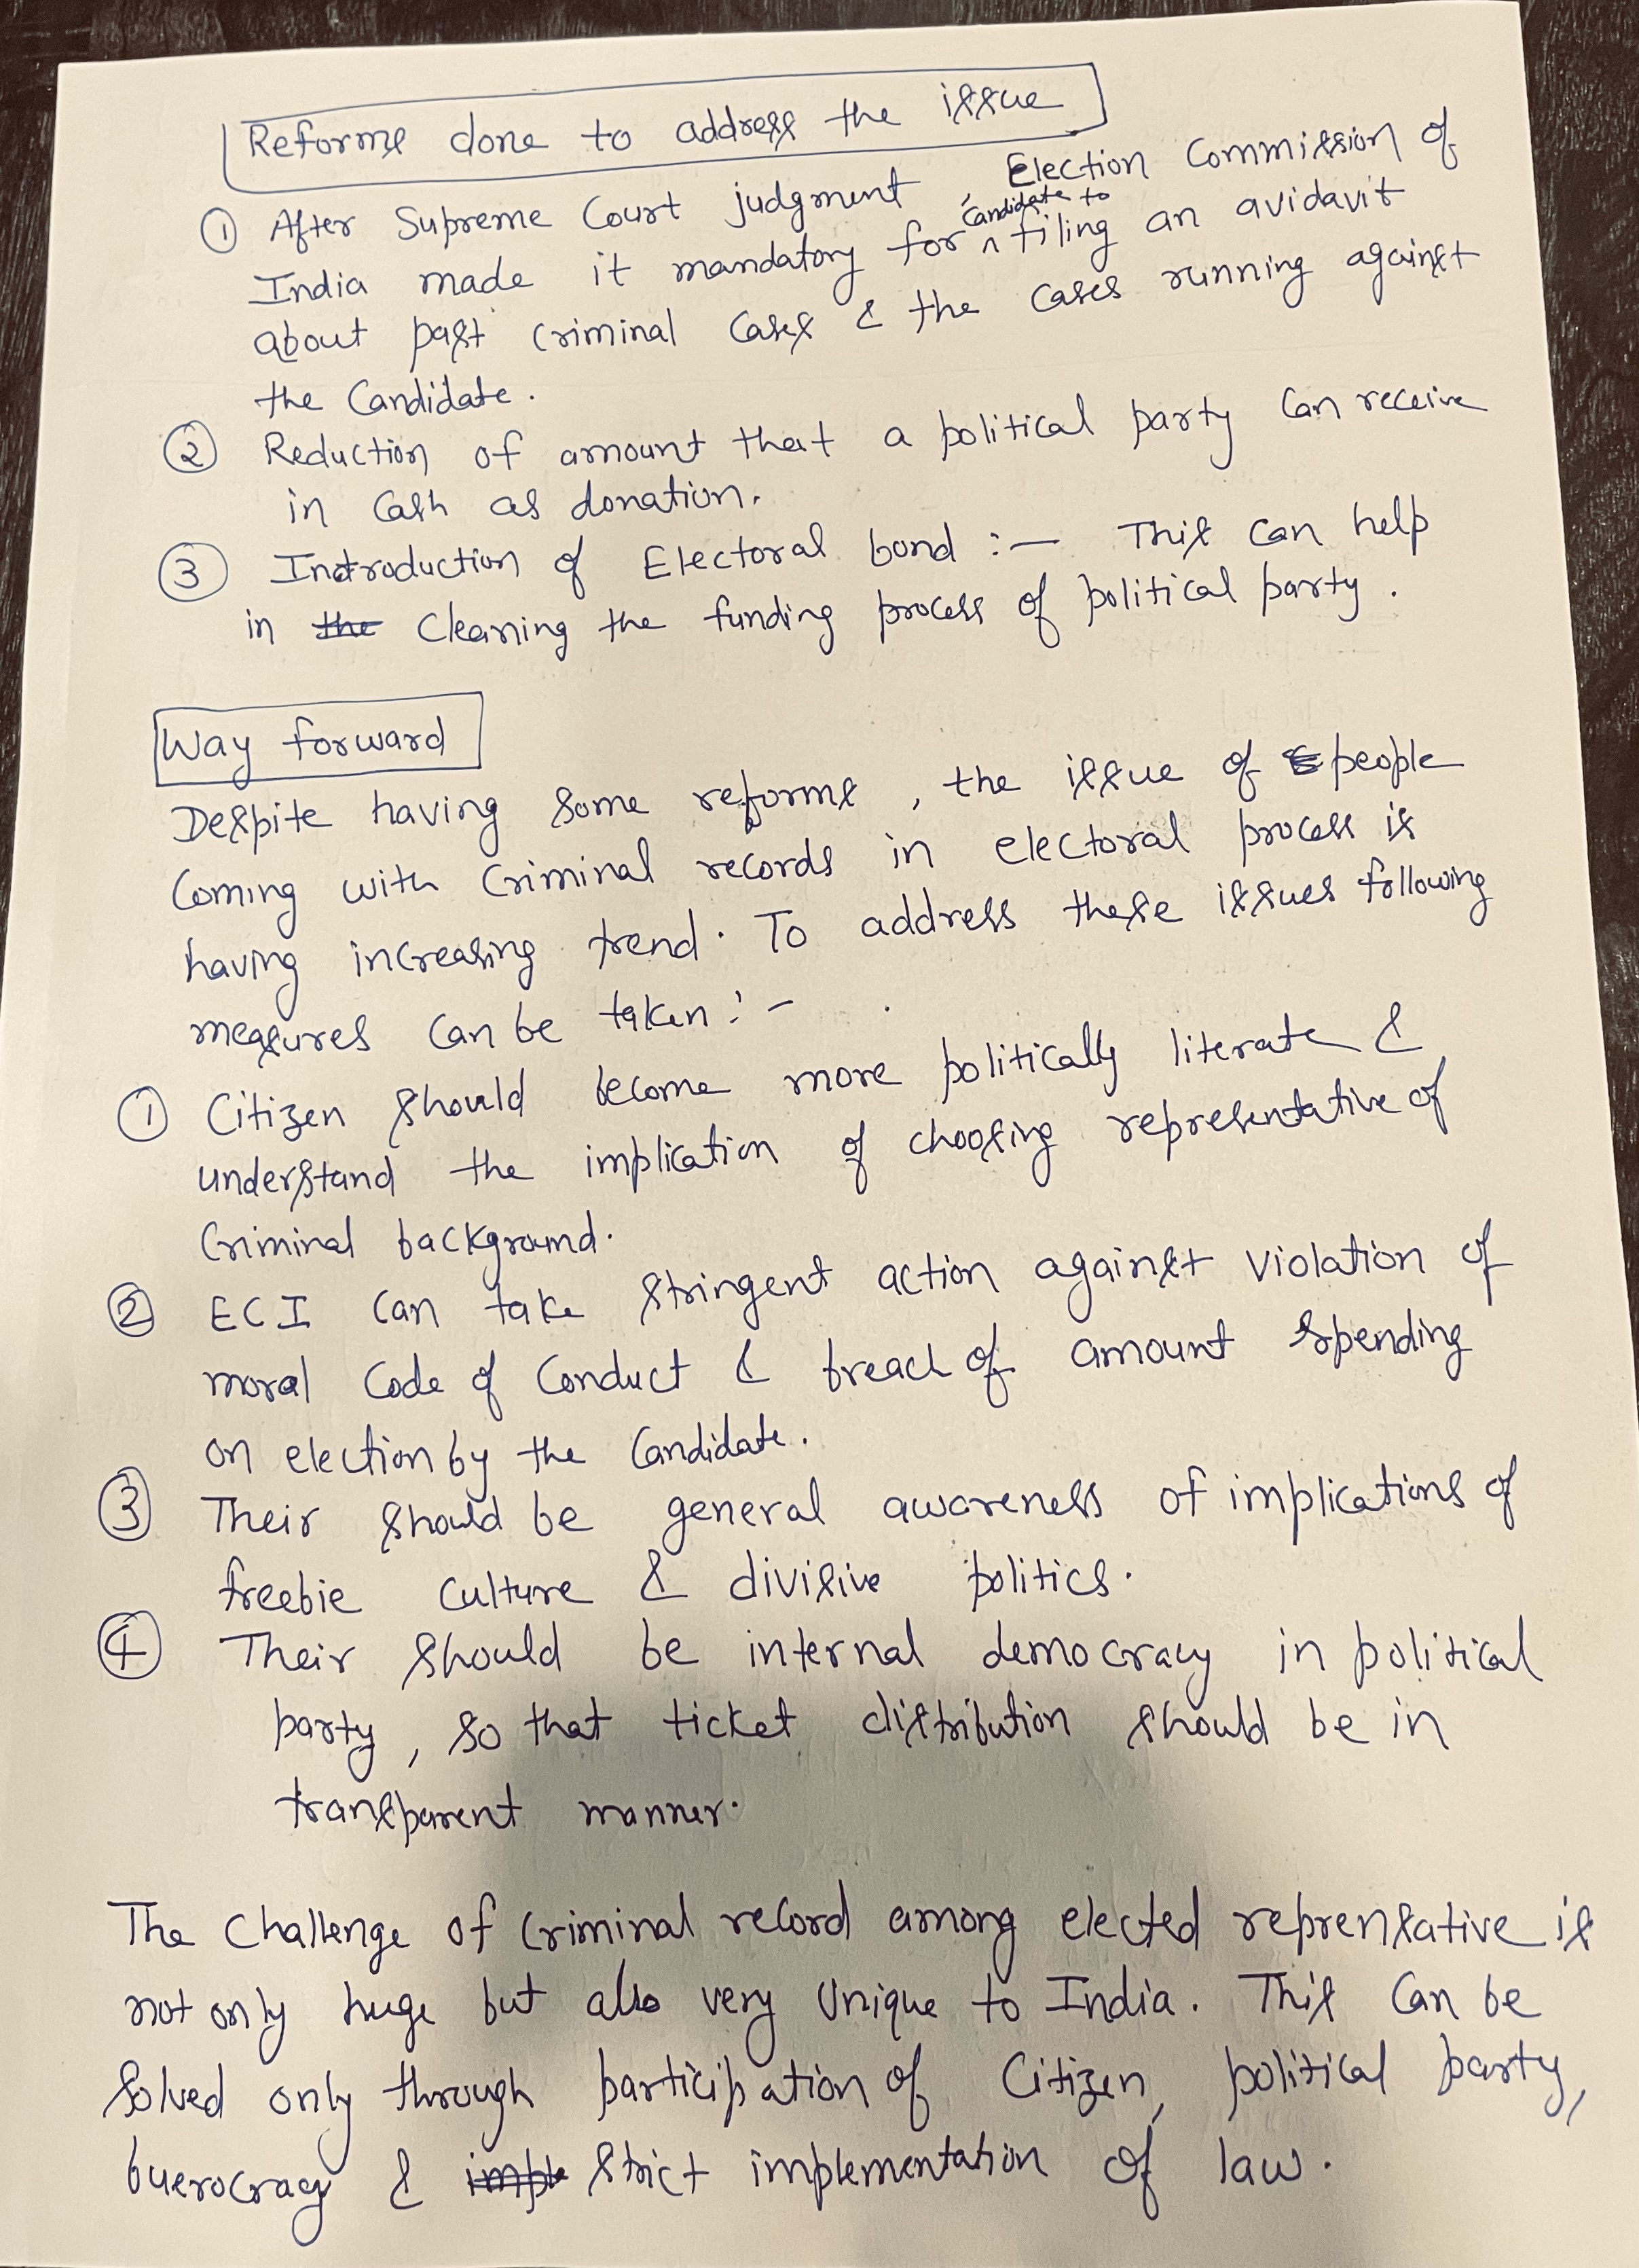 Reforms done to address the issue
① After Supreme Court judgment, Election Commission of
India made it mandatory for candidate to filing an avidavit
about past criminal cases & the cases running against
the Candidate.
② Reduction of amount that a political party can receive
in cash as donation.
③ Introduction of Electoral bond :— This can help
in the cleaning the funding process of political party.
Way forward
Despite having some reforms, the issue of people
coming with criminal records in electoral process is
having increasing trend. To address these issues following
measures can be taken :-
① Citizen should become more politically literate &
understand the implication of choosing representative of
criminal background.
② ECI can take stringent action against violation of
moral code of conduct & breach of amount spending
on election by the candidate.
③ Their should be general awareness of implications of
freebie culture & divisive politics.
④ Their should be internal democracy in political
party, so that ticket distribution should be in
transparent manner.
The challenge of criminal record among elected reprensative is
not only huge but also very unique to India. This can be
solved only through participation of citizen, political party,
buerocracy & imple strict implementation of law.